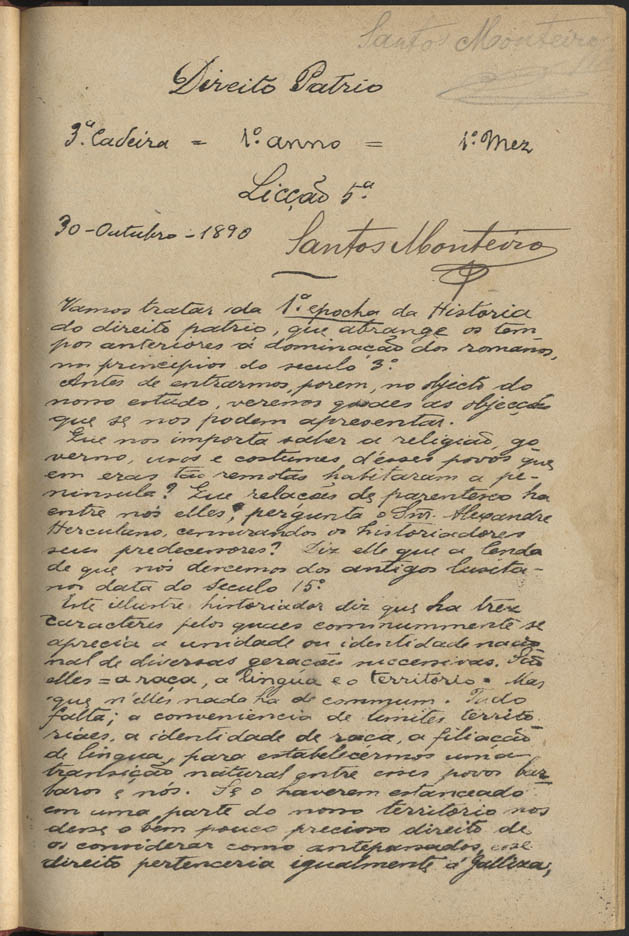 Santos Monteiro
Direito Patrio
3ª Cadeira = 1º anno = 1º Mez
Licção 5ª
30-Outubro-1890 Santos Monteiro
Vamos tratar da 1ª epocha da Historia
do direito patrio, que abrange os tem
pos anteriores á dominação dos romanos,
nos principios do seculo 3º
Antes de entrarmos, porem, no objecto do
nosso estudo, veremos quaes as objecções
que se nos podem apresentar.
Que nos importa saber a religião, go
verno, usos e costumes d'esses povos que
em eras tão remotas habitaram a pe-
ninsula? Que relações de parentesco ha
entre nós elles, pergunta o Snr. Alexandre
Herculano, censurando os historiadores
seus predecessores? Diz elle que a lenda
de que nós descemos dos antigos lusita-
nos data do seculo 15º
Este illustre historiador diz que ha trez
caracteres pelos quaes commummente se
aprecia a unidade ou identidade nacio
nal de diversas gerações successivas. São
elles = a raça, a lingua e o territorio. Mas
que n'elles nada ha de commum. Tudo
falta; a conveniencia de limites territo
riaes, a identidade de raça, a filiação
de lingua, para estabelecermos uma
transição natural entre esses povos bar
baros e nós. Se o haverem estanceado
em uma parte do nosso territorio nos
desse o bem pouco precioso direito de
os considerar como antepassados, esse
direito pertenceria igualmente á Galliza,